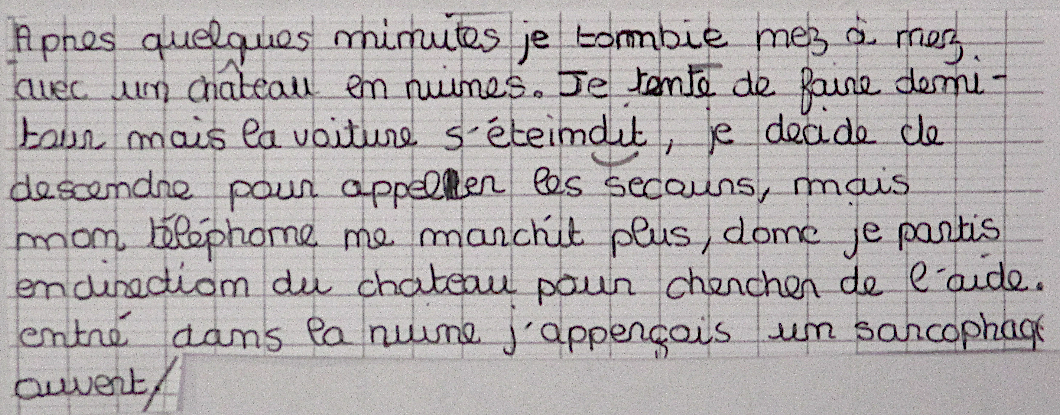 Apres quelques minutes je tombie mez à mez
avec um château en ruines. Je tente de faire demi-
tour mais la voiture s'éteindit, je decide de
descendre pour appeller les secours, mais
mon téléphone ne marchit plus, donc je partis
en direction du chateau pour chercher de l'aide.
entré dans la ruine j'apperçais un sarcophage
ouvert/